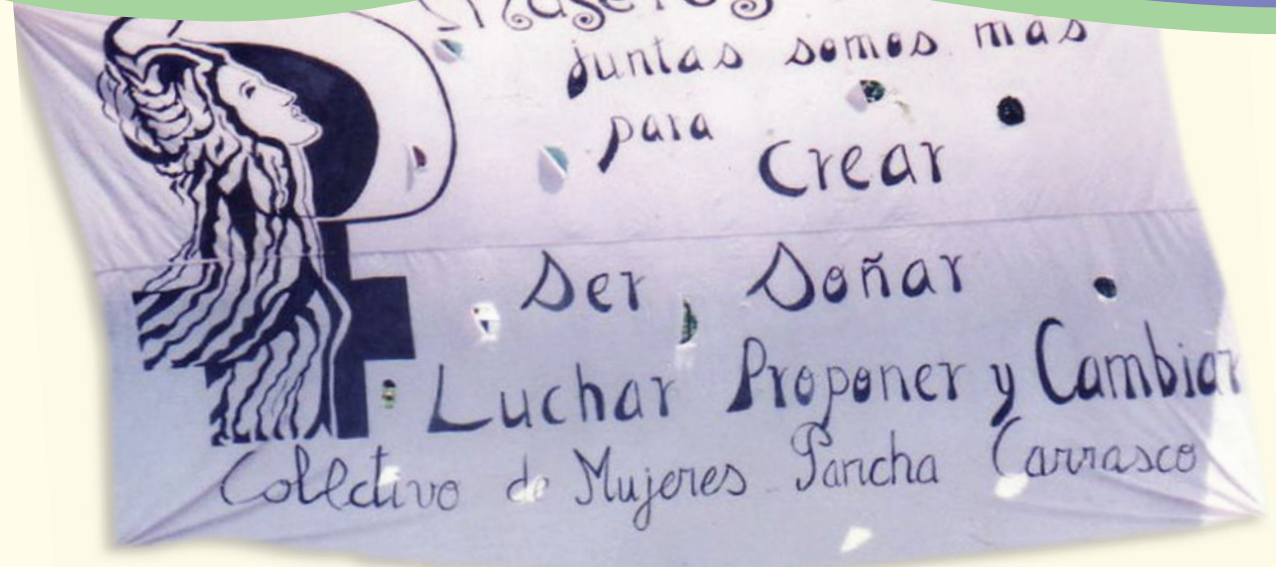 juntas somos mas
para
Crear
Ser Soñar
Luchar Proponer y Cambiar
Colectivo de Mujeres Pancha Carrasco